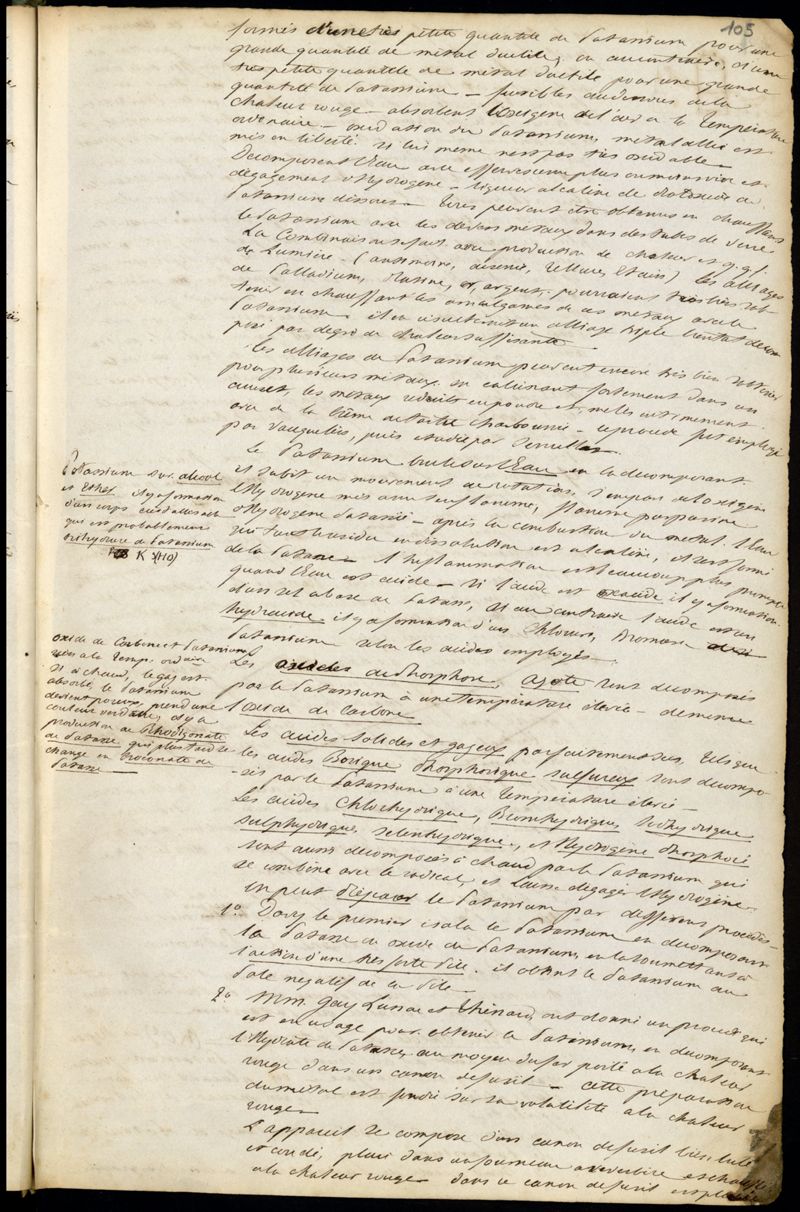 105
formés d'une très petite quantité de Potassium pour une
grande quantité de métal ductile, ou au contraire, d'une
très petite quantité de métal ductile pour une grande
quantité de Potassium — fusibles au dessous de la
chaleur rouge — absorbent l'oxigène de l'air à la Température
ordinaire — oxidation du Potassium, métal allié est
mis en liberté. si lui même n'est pas très oxidable —
Decomposent l'eau avec effervescence plus ou moins vive et
dégagement d'hydrogène — liqueur alcaline de protoxide de
Potassium dissous — Tous peuvent être obtenus en chauffant
le Potassium avec les divers métaux dans des tubes de verre
La Combinaison se fait avec production de chaleur et q.q.f.
de Lumière — (antimoine, arsenic, Tellure, Etain) les alliages
de Palladium, Platine, or, argent, pourraient très bien s'ob-
tenir en chauffant les amalgames de ces métaux avec le
Potassium. il en résulterait un alliage triple bientôt décom
posé par degré de chaleur suffisante
Les alliages de Potassium peuvent encore très bien s'obtenir,
pour plusieurs métaux en calcinant fortement dans un
creuset, les métaux réduits en poudre et mêlés intimement
avec de la Crême de tartre charbonnée — ce procédé fut employé
par Vauquelin, puis étudié par Serullas.
Le Potassium brule sur l'Eau en la décomposant.
il subit un mouvement de rotation, s'empare de l'oxigène
l'Hydrogène mis à nu s'enflamme, flamme purpurine
d'Hydrogène Potassié — après la combustion du métal. l'Eau
qui tout le résidu en dissolution est alcaline, il s'est formé
de la Potasse — l'inflammation est beaucoup plus prompte
quand l'Eau est acide — si l'acide est oxacide il y a formation
d'un sel à base de Potasse, si au contraire l'acide est un
hydracide il y a formation d'un Chlorure, Bromure
Potassium selon les acides employés —
Potassium sur alcool
et Ether il y a formation
d'un corps cristallisable
qui est probablement
trihydrure de Potassium
K 3(HO)
Les oxides de Phosphore, azote sont decomposés
par le Potassium à une température élevée — de même
l'oxide de carbone
oxide de Carbone et Potassium
rien à la temp. ordinaire
si à chaud, le gaz est
absorbé, le Potassium
devient poreux, prend une
couleur verdâtre, il y a
production de Rhodizonate
de Potasse qui plus tard se
change en Croconate de
Potasse —
Les acides solides et gazeux parfaitement secs, tels que
les acides Borique Phosphorique sulfureux sont decompo-
sés par le Potassium à une Température élevée —
Les acides Chlorhydrique, Bromhydrique, Iodhydrique
sulphydrique, selenhydrique, et Hydrogène Phosphoré
sont aussi decomposés à chaud par le Potassium qui
se combine avec le radical, et laisse dégager l'Hydrogène
On peut préparer le Potassium par différens procédés —
1° Davy le premier isola le Potassium en décomposant
la Potasse ou oxide de Potassium, en la soumettant à
l'action d'une très forte Pile. il obtint le Potassium au
Pole négatif de la Pile —
2° MM. Gay Lussac et Thénard, ont donné un procédé qui
est en usage pour obtenir le Potassium, en decomposant
l'Hydrate de Potasse, au moyen du fer porté à la chaleur
rouge dans un canon de fusil — cette préparation
du métal est fondée sur sa volatilité à la chaleur
rouge —
L'appareil se compose d'un canon de fusil bien luté
et coudé, placé dans un fourneau à réverbère et chauffé
à la chaleur rouge — dans ce canon de fusil est placée